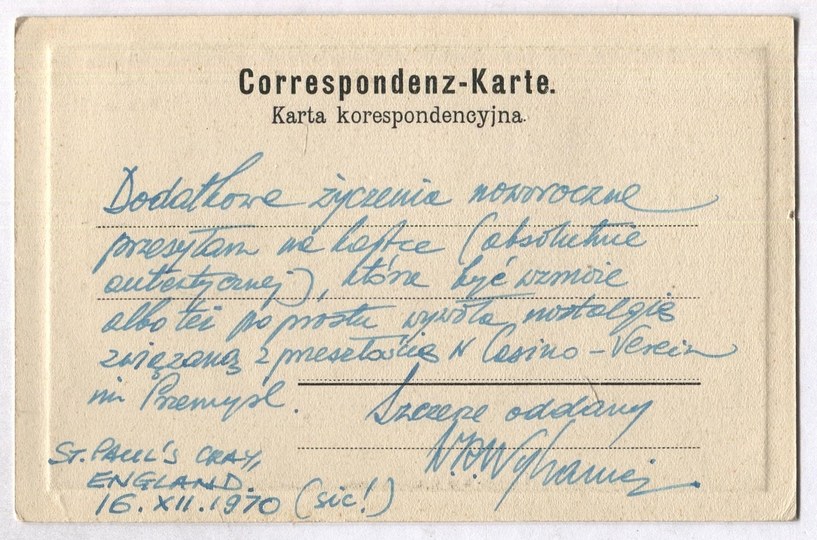 Correspondenz-Karte.
Karta korespondencyjna.
Dodatkowe życzenia noworoczne
przesyłam na kartce (absolutnie
autentycznej), która być może
albo też po prostu wywoła nostalgię
związaną z przeszłością w Casino-Verein
in Przemysl.
Szczerze oddany
ST. PAUL'S CRAY,
ENGLAND.
16. XII. 1970 (sic!)